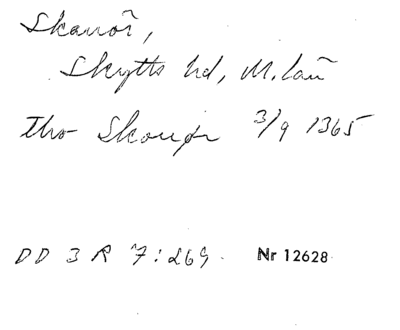 Skanör,
Skytts hd, M.län
tho Skonør 3/9 1365
DD 3 R 7:269. Nr 12628